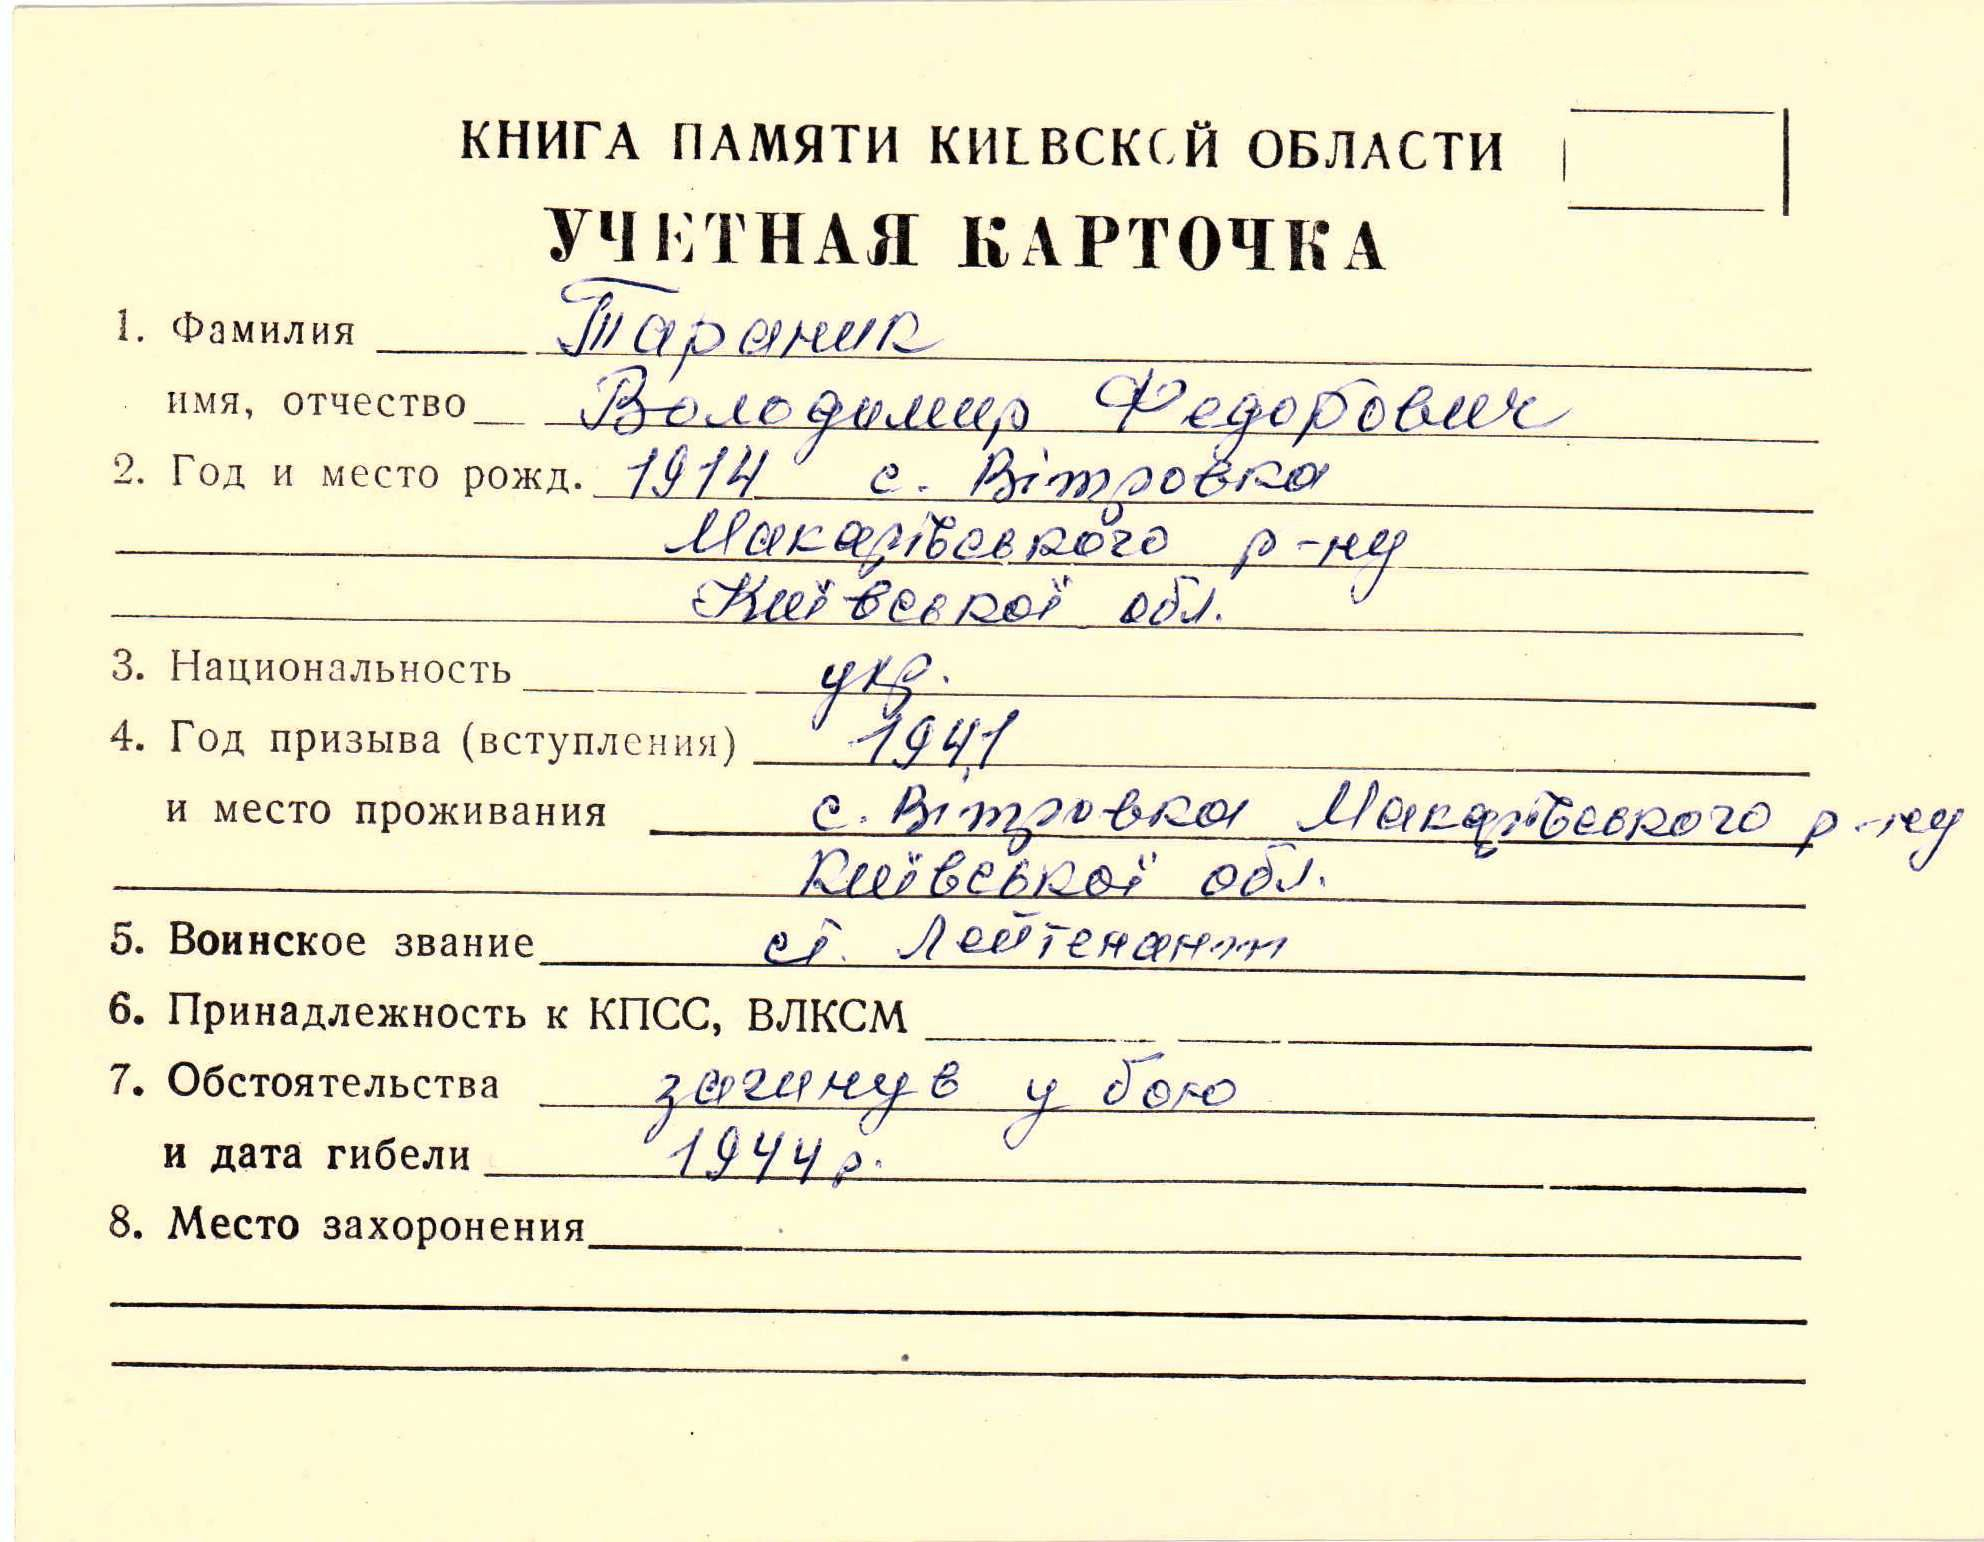 КНИГА ПАМЯТИ КИЕВСКОЙ ОБЛАСТИ
УЧЕТНАЯ КАРТОЧКА
1. Фамилия Тараник
имя, отчество Володимир Федорович
2. Год и место рожд. 1914 с. Вітровка
Макарівського р-ну
Київської обл.
3. Национальность укр.
4. Год призыва (вступления) 1941
и место проживания с. Вітровка Макарівського р-ну
Київської обл.
5. Воинское звание ст. Лейтенант
6. Принадлежность к КПСС, ВЛКСМ
7. Обстоятельства загинув у бою
и дата гибели 1944 р.
8. Место захоронения